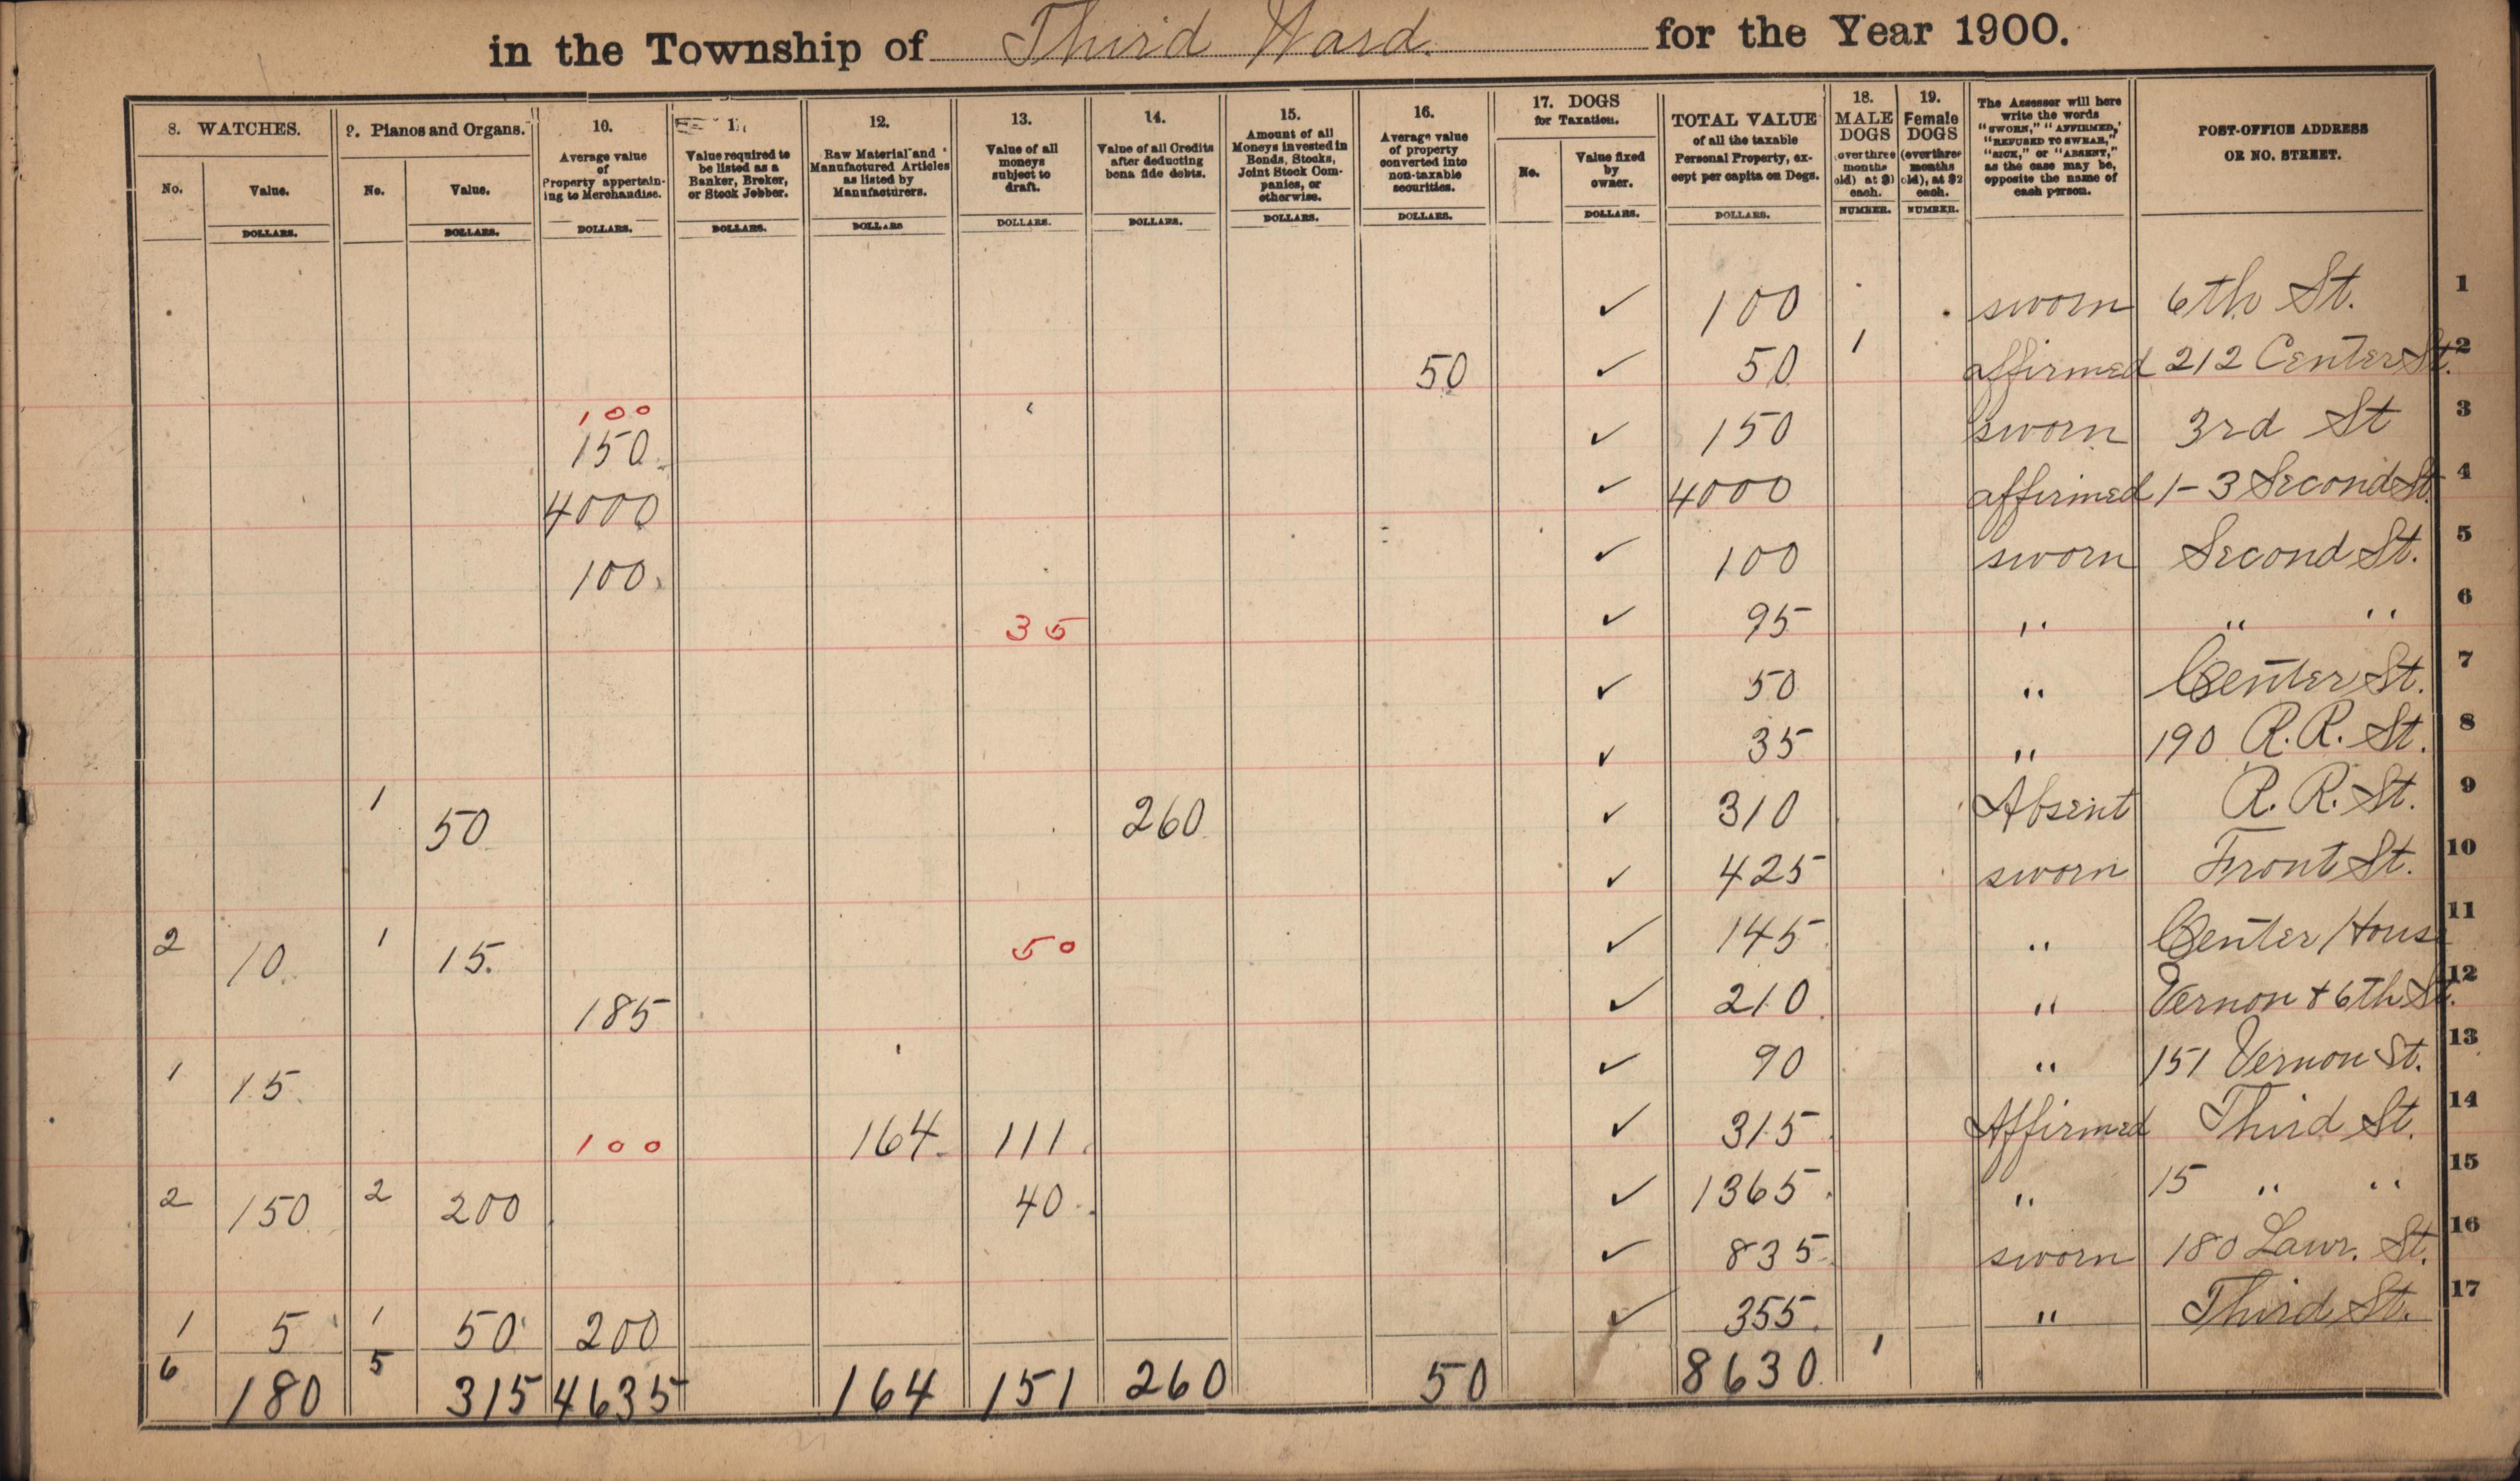 in the Township of Third Ward. for the Year 1900.
8. WATCHES.
No.
Value.
DOLLARS.
9. Pianos and Organs.
No.
Value.
DOLLARS.
10.
Average value
of
Property appertain-
ing to Merchandise.
DOLLARS.
Value required to
be listed as a
Banker, Broker,
or Stock Jobber.
DOLLARS.
12.
Raw Material and
Manufactured Articles
as listed by
Manufacturers.
DOLLARS
13.
Value of all
moneys
subject to
draft.
DOLLARS.
14.
Value of all Credits
after deducting
bona fide debts.
DOLLARS.
15.
Amount of all
Moneys invested in
Bonds, Stocks,
Joint Stock Com-
panies, or
otherwise.
DOLLARS.
16.
Average value
of property
converted into
non-taxable
securities.
DOLLARS.
17. DOGS
for Taxation.
No.
Value fixed
by
owner.
DOLLARS.
TOTAL VALUE
of all the taxable
Personal Property, ex-
cept per capita on Dogs.
DOLLARS.
18.
MALE
DOGS
(over three
months
old) at $1
each.
NUMBER.
19.
Female
DOGS
(over three
months
old), at $2
each.
NUMBER.
The Assessor will here
write the words
"SWORN," "AFFIRMED,"
"REFUSED TO SWEAR,"
"SICK," or "ABSENT,"
as the case may be,
opposite the name of
each person.
POST-OFFICE ADDRESS
OR NO. STREET.
✓ 100 sworn 6th St. 1
50 ✓ 50 1 affirmed 212 Center St. 2
100
150 ✓ 150 sworn 3rd St 3
4000 ✓ 4000 affirmed 1-3 Second St. 4
100 ✓ 100 sworn Second St. 5
35 ✓ 95 " " " 6
✓ 50 " Center St. 7
✓ 35 " 190 R.R. St. 8
1 50 260 ✓ 310 Absent R. R. St. 9
✓ 425 sworn Front St. 10
2 10. 1 15. 50 ✓ 145 " Center Hous 11
185 ✓ 210 " Vernon & 6th St. 12
1 15 ✓ 90 " 151 Vernon St. 13
100 164 111 ✓ 315 Affirmed Third St. 14
2 150 2 200 40 ✓ 1365 " 15 " " 15
✓ 835 sworn 180 Lawr. St. 16
1 5 1 50 200 ✓ 355 " Third St. 17
6 180 5 315 4635 164 151 260 50 8630 1